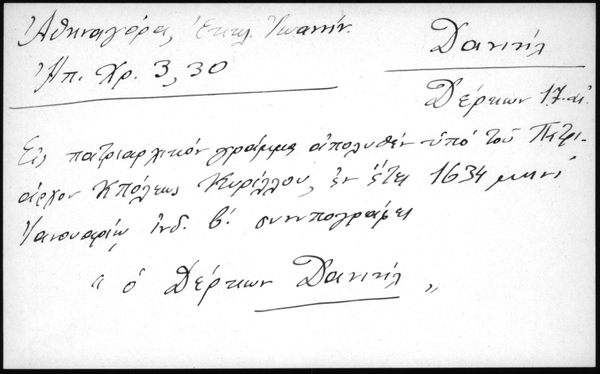 Ἀθηναγόρας, Ἐκκλ. Ἰωαννίν.
Δανιήλ
Ἠπ. Χρ. 3, 30
Δέρκων 17. αἰ.
Εἰς πατριαρχικόν γράμμα ἀπολυθέν ὑπό τοῦ Πατρι-
άρχου Κπόλεως Κυρίλλου, ἐν ἔτει 1634 μηνί
Ἰανουαρίῳ ἰνδ. β΄. συνυπογράφει
“ ὁ Δέρκων Δανιήλ „